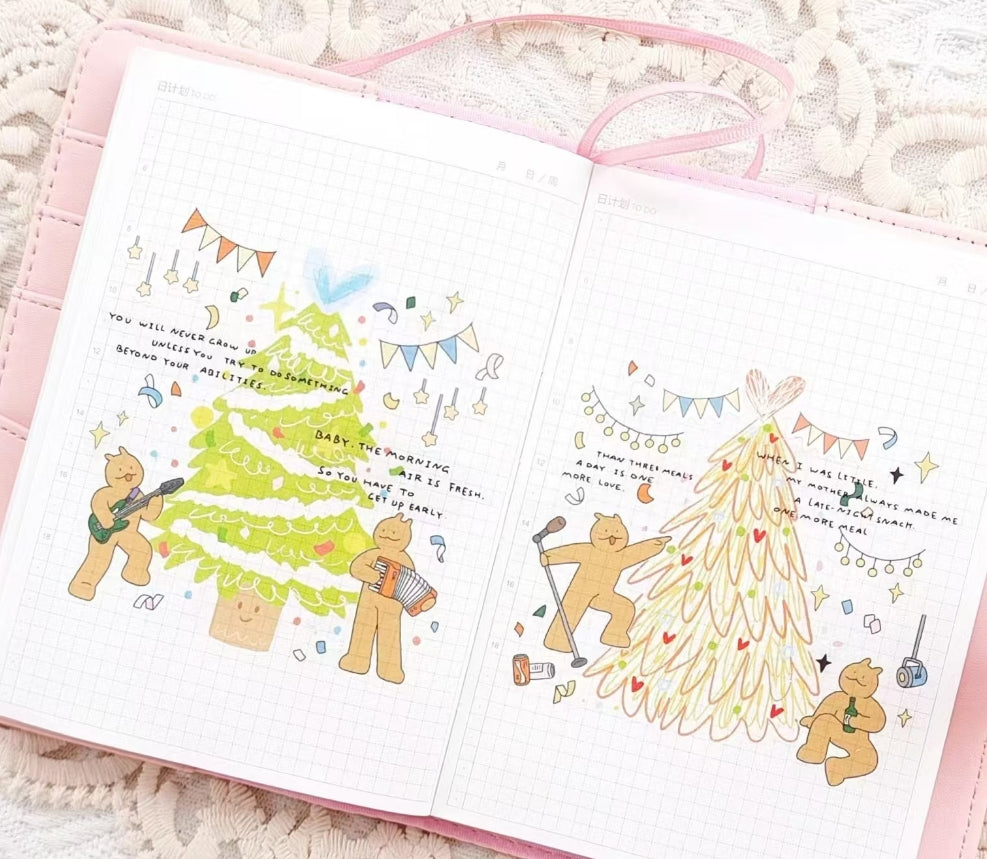 日计划 TO DO
月 日 / 周
YOU WILL NEVER GROW UP
UNLESS YOU TRY TO DO SOMETHING
BEYOND YOUR ABILITIES.
BABY. THE MORNING
AIR IS FRESH.
SO YOU HAVE TO
GET UP EARLY.
6
8
10
12
14
16
18
日计划 TO DO
月 日 /
THAN THREE MEALS
A DAY IS ONE
MORE LOVE.
WHEN I WAS LITTLE.
MY MOTHER ALWAYS MADE ME
A LATE-NIGHT SNACK.
ONE MORE MEAL
8
10
12
14
16
18